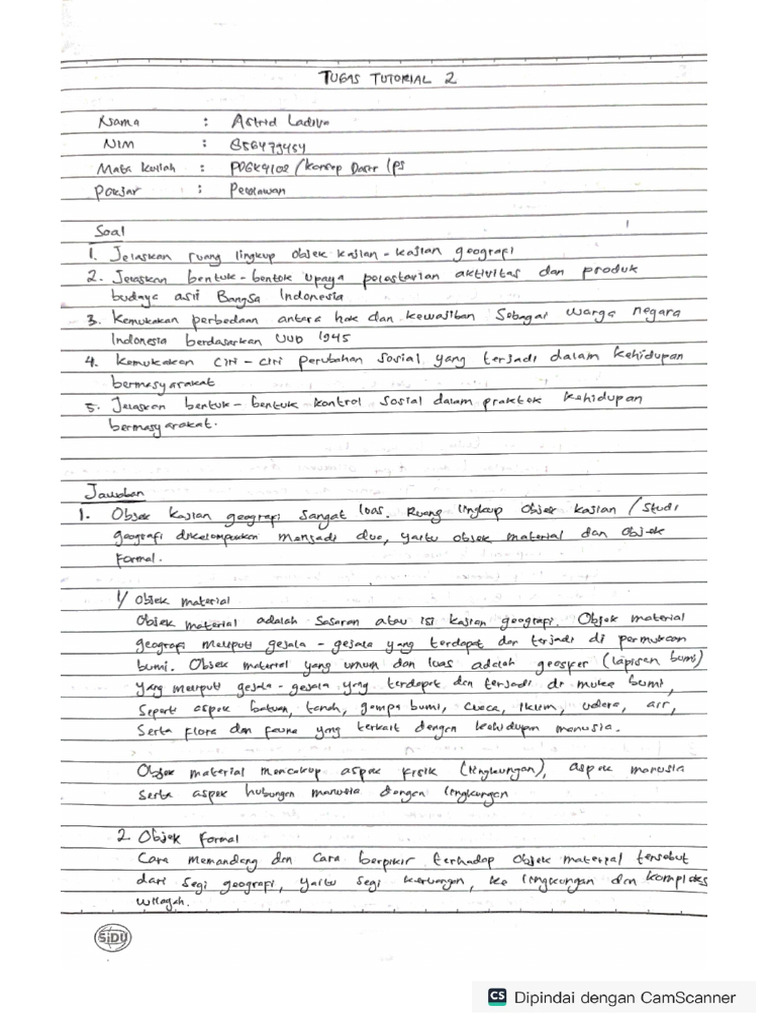 TUGAS TUTORIAL 2
Nama : Astrid Ladiva
NIM : 856479454
Mata Kuliah : PDGK4102 / Konsep Dasar IPS
Pokjar : Pelalawan
Soal
1. Jelaskan ruang lingkup objek kajian - kajian geografi
2. Jelaskan bentuk - bentuk upaya pelestarian aktivitas dan produk
budaya asli Bangsa Indonesia
3. Kemukakan perbedaan antara hak dan kewajiban Sebagai warga negara
Indonesia berdasarkan UUD 1945
4. Kemukakan ciri - ciri perubahan sosial yang terjadi dalam kehidupan
bermasyarakat
5. Jelaskan bentuk - bentuk kontrol sosial dalam praktek kehidupan
bermasyarakat.
Jawaban
1. Objek kajian geografi sangat luas. Ruang lingkup objek kajian / studi
geografi dikelompokkan menjadi dua, yaitu objek material dan objek
Formal.
1) Objek material
Objek material adalah sasaran atau isi kajian geografi. Objek material
geografi meliputi gejala - gejala yang terdapat dan terjadi di permukaan
bumi. Objek material yang umum dan luas adalah geosfer (lapisan bumi)
yang meliputi gejala - gejala yang terdapat dan terjadi di muka bumi,
seperti aspek batuan, tanah, gempa bumi, cuaca, iklim, udara, air,
Serta flora dan fauna yang terkait dengan kehidupan manusia.
Objek material mencakup aspek fisik (lingkungan), aspek manusia
serta aspek hubungan manusia dengan lingkungan
2. Objek Formal
Cara memandang dan cara berpikir terhadap objek material tersebut
dari segi geografi, yaitu segi keruangan, ke lingkungan dan kompleks
wilayah.
SiDU
CS Dipindai dengan CamScanner